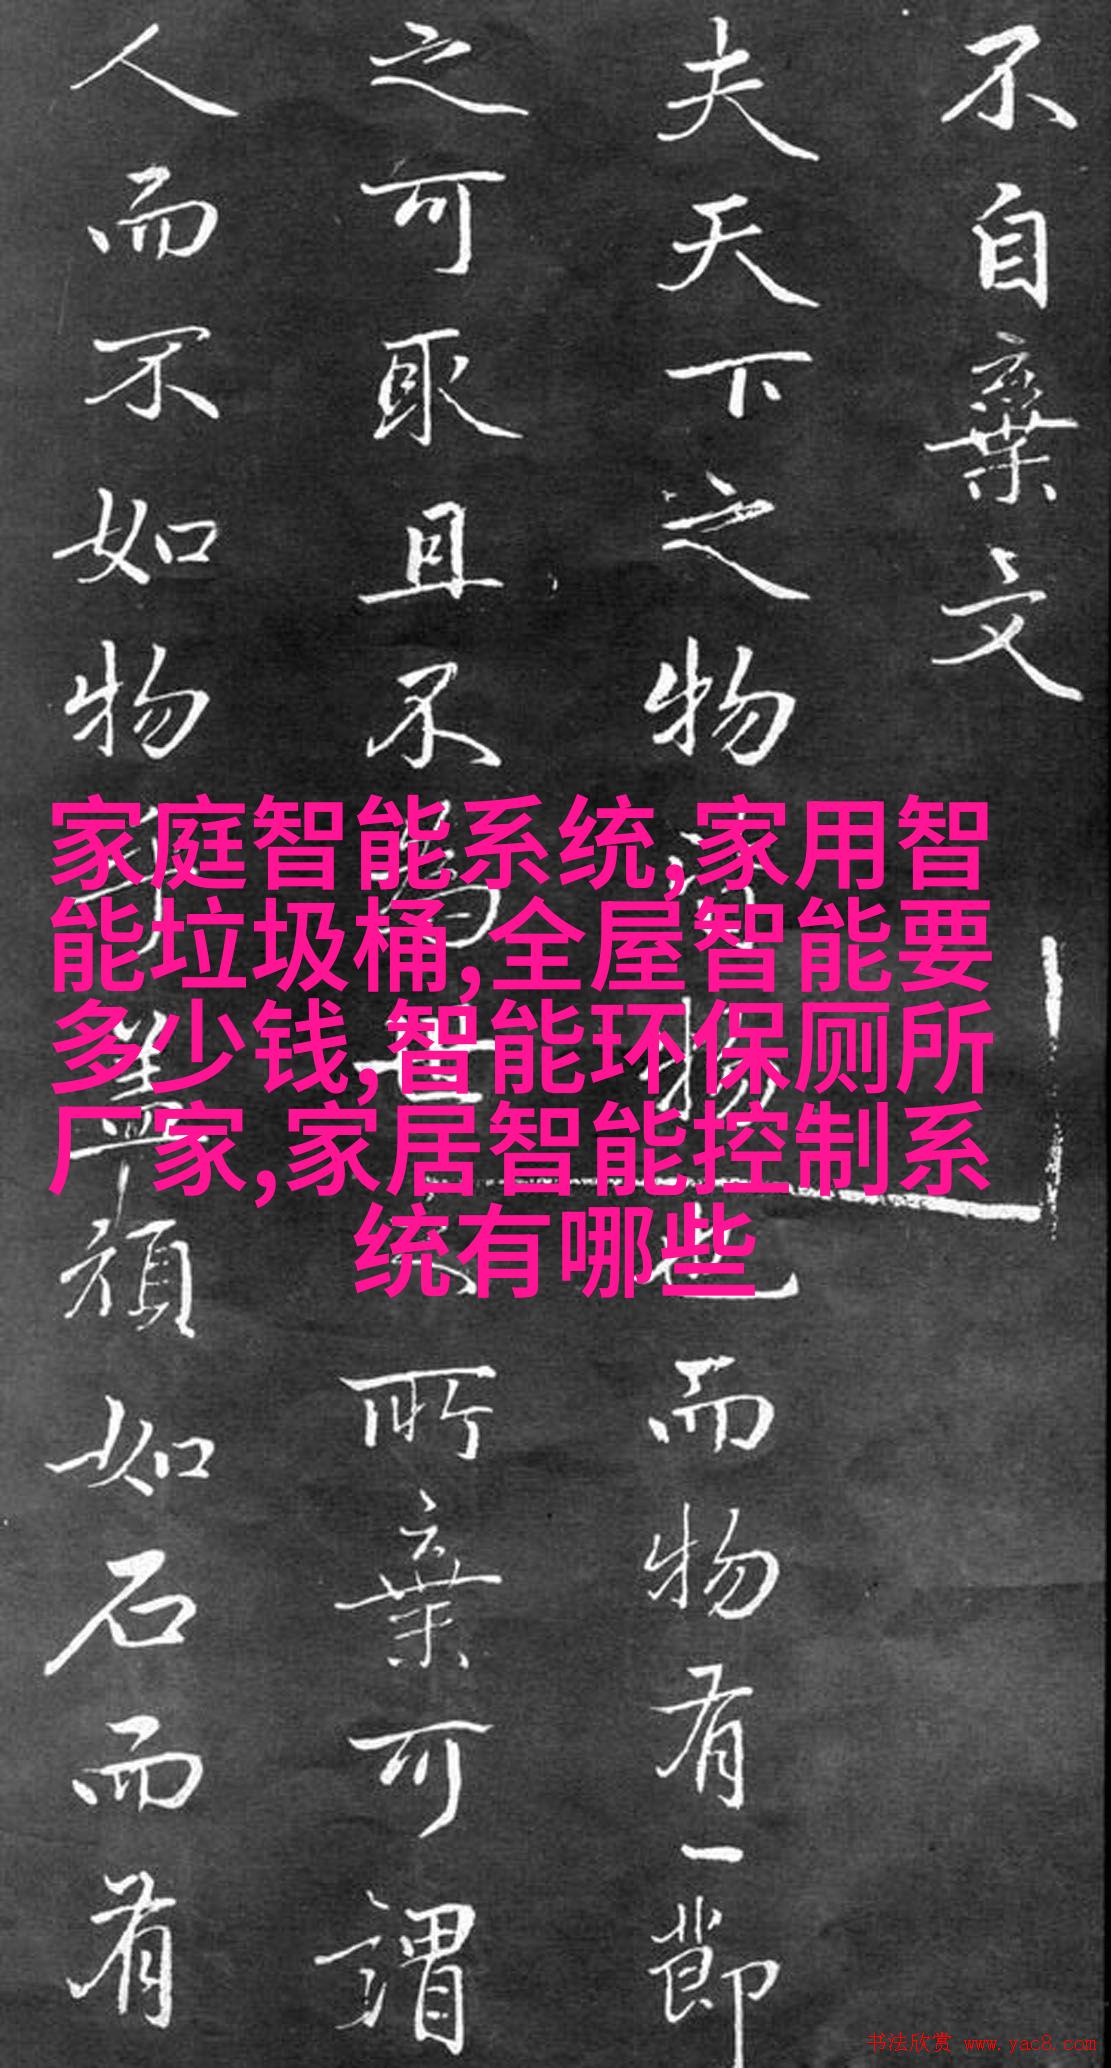 不自棄文
夫天下之物物也而物有一節
之可取且不為世所棄可謂
人而不如物乎蓋頑如石而有
家庭智能系统,家用智
能垃圾桶,全屋智能要
多少钱,智能环保厕所
厂家,家居智能控制系
统有哪些
书法欣赏 www.yac8.com